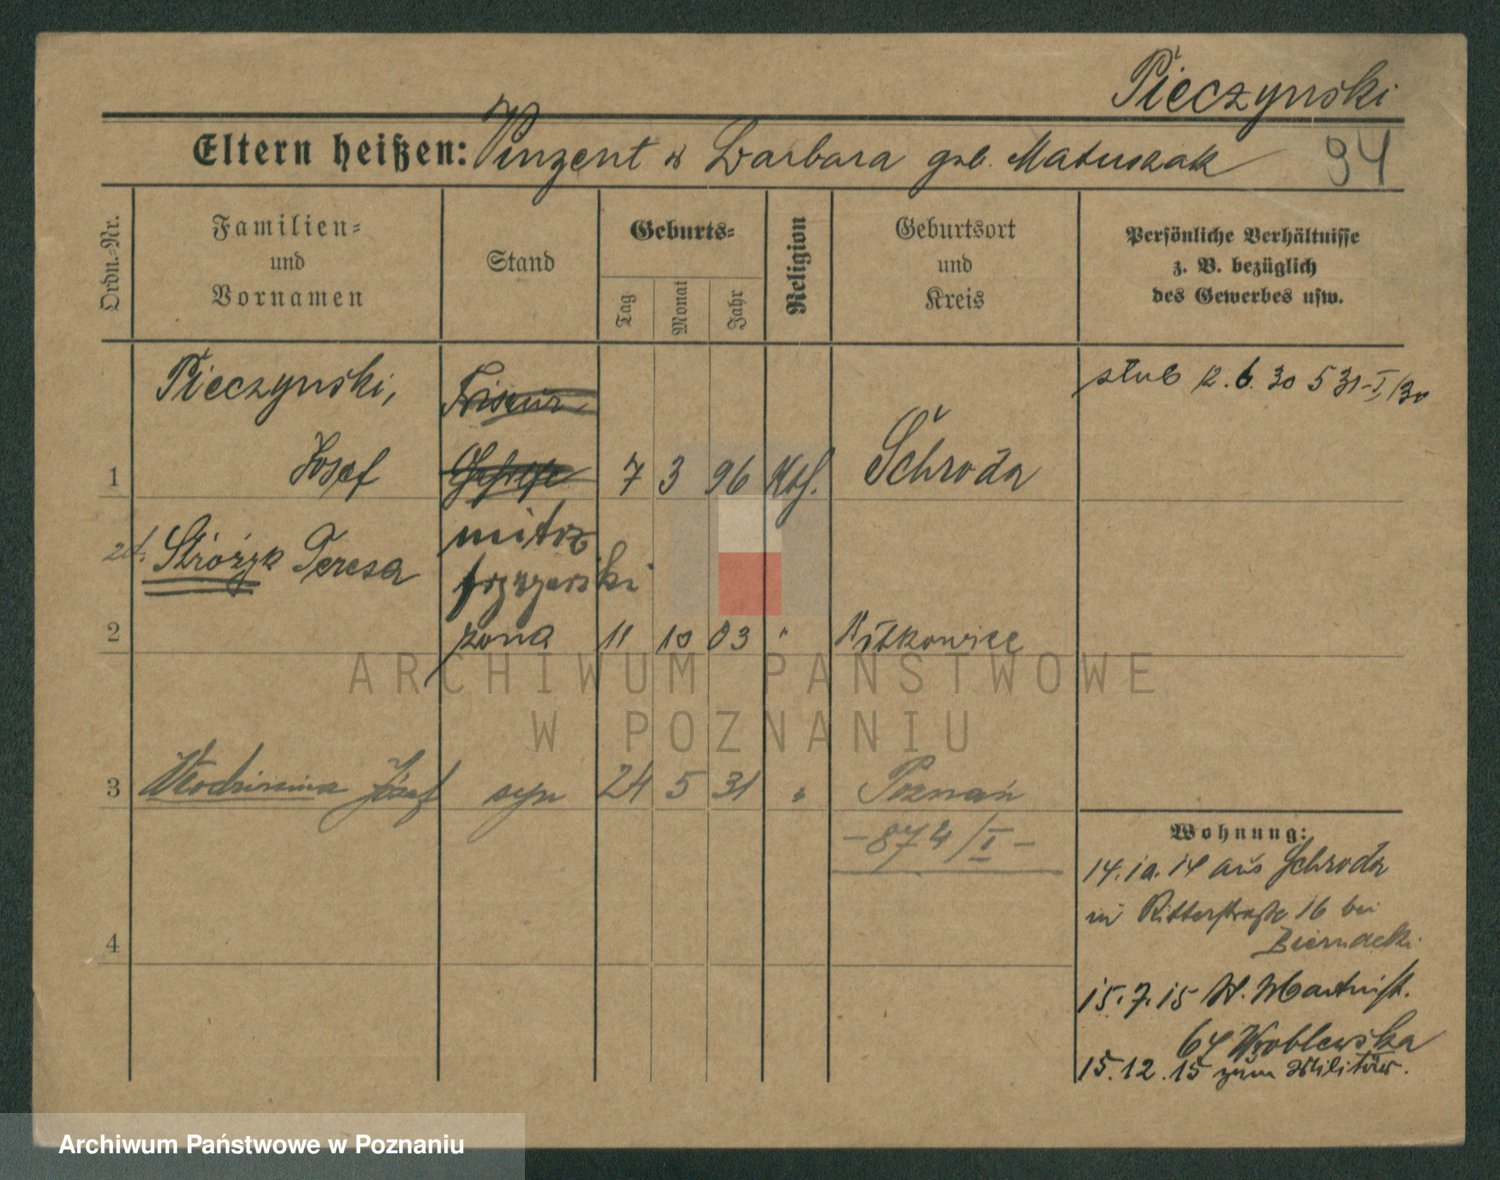 Pieczynski
Eltern heißen: Vinzent & Barbara geb. Matuszak 94
Ordn.-Nr.
Familien-
und
Vornamen
Stand
Geburts-
Tag
Monat
Jahr
Religion
Geburtsort
und
Kreis
Persönliche Verhältnisse
z. B. bezüglich
des Gewerbes usw.
Pieczynski,
Friseur
ślub 12. 6. 30 531-I/30
1 Josef
Gehilfe
7 3 96 Kth. Schroda
Stróżyk Teresa
mistrz
fryzjerski
2 żona 11 10 03 " Witkowice
ARCHIWUM PAŃSTWOWE
W POZNANIU
3 Włodzimierz Józef syn 24 5 31 " Poznań
- 874/I -
Wohnung:
14.10.14 aus Schroda
in Ritterstraße 16 bei
Biernacki
4
15.7.15 St. Martinst.
64 Wroblewska
15.12.15 zum Militär.
Archiwum Państwowe w Poznaniu